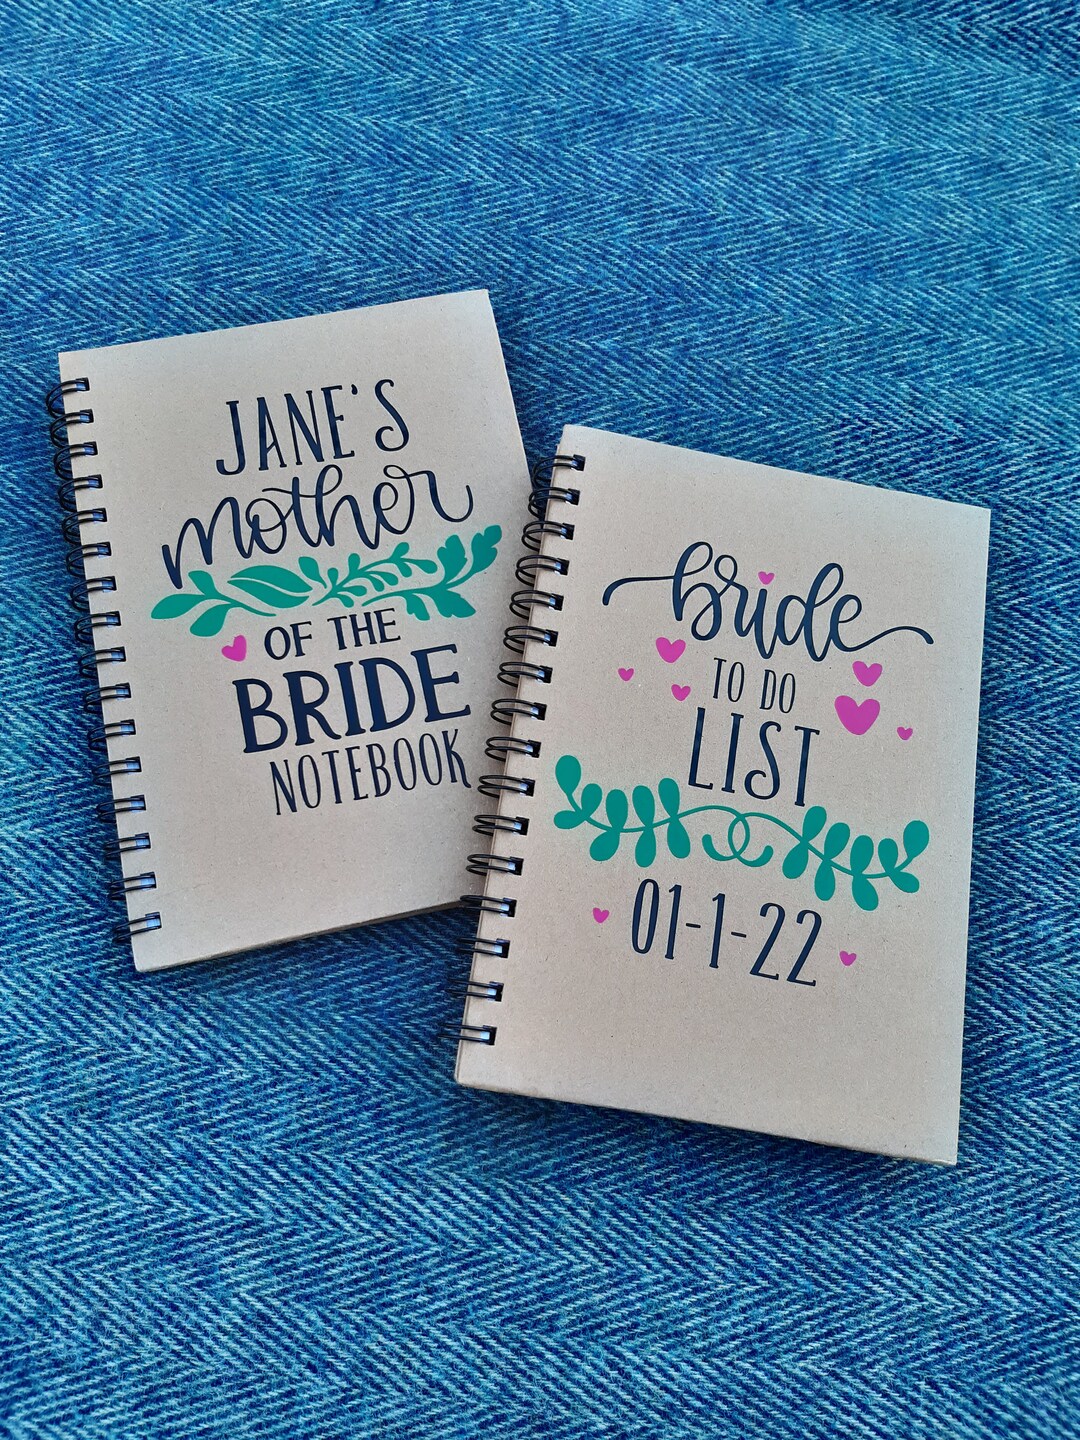 JANE'S
mother
OF THE
BRIDE
NOTEBOOK
bride
TO DO
LIST
01-1-22